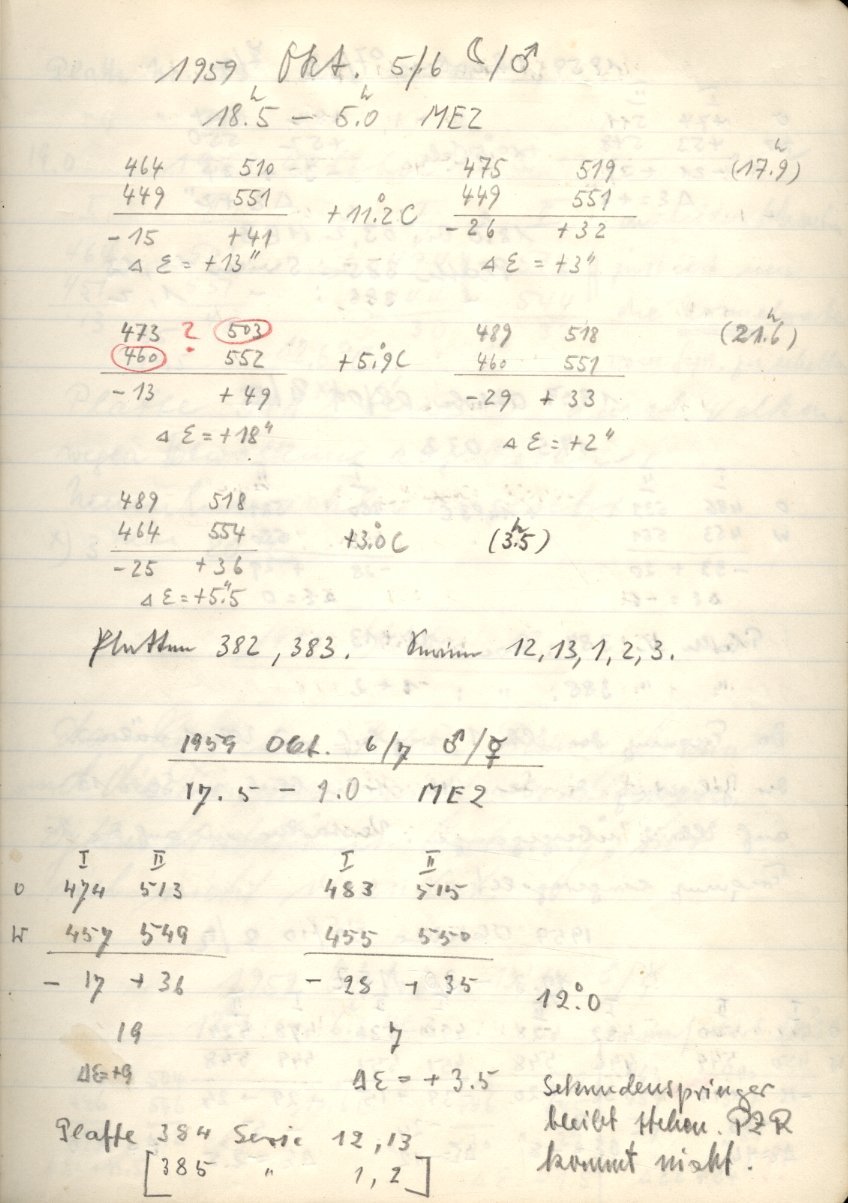 1959 Okt. 5/6 ☾/♂
18.5ʰ – 5.0ʰ MEZ
464 510 475 519 (17.9ʰ)
449 551 +11°.2C 449 551
-15 +41 -26 +32
Δ ε = +13" Δ ε = +3"
473 ? 503 489 518 (21.6ʰ)
460 552 +5°.9C 460 551
-13 +49 -29 +33
Δ ε = +18" Δ ε = +2"
489 518
464 554 +3°.0C (3.5ʰ)
-25 +36
Δ ε = +5".5
Platten 382, 383. Serien 12, 13, 1, 2, 3.
1959 Okt. 6/7 ♂/☿
17.5 – 1.0 MEZ
I II I II
O 474 513 483 515
W 457 549 455 550
- 17 + 36 - 28 + 35 12°.0
19 7
Δε +9 Δε = + 3.5
Sekundenspringer
bleibt stehen. PZR
kommt nicht.
Platte 384 Serie 12, 13
[385 " 1, 2]